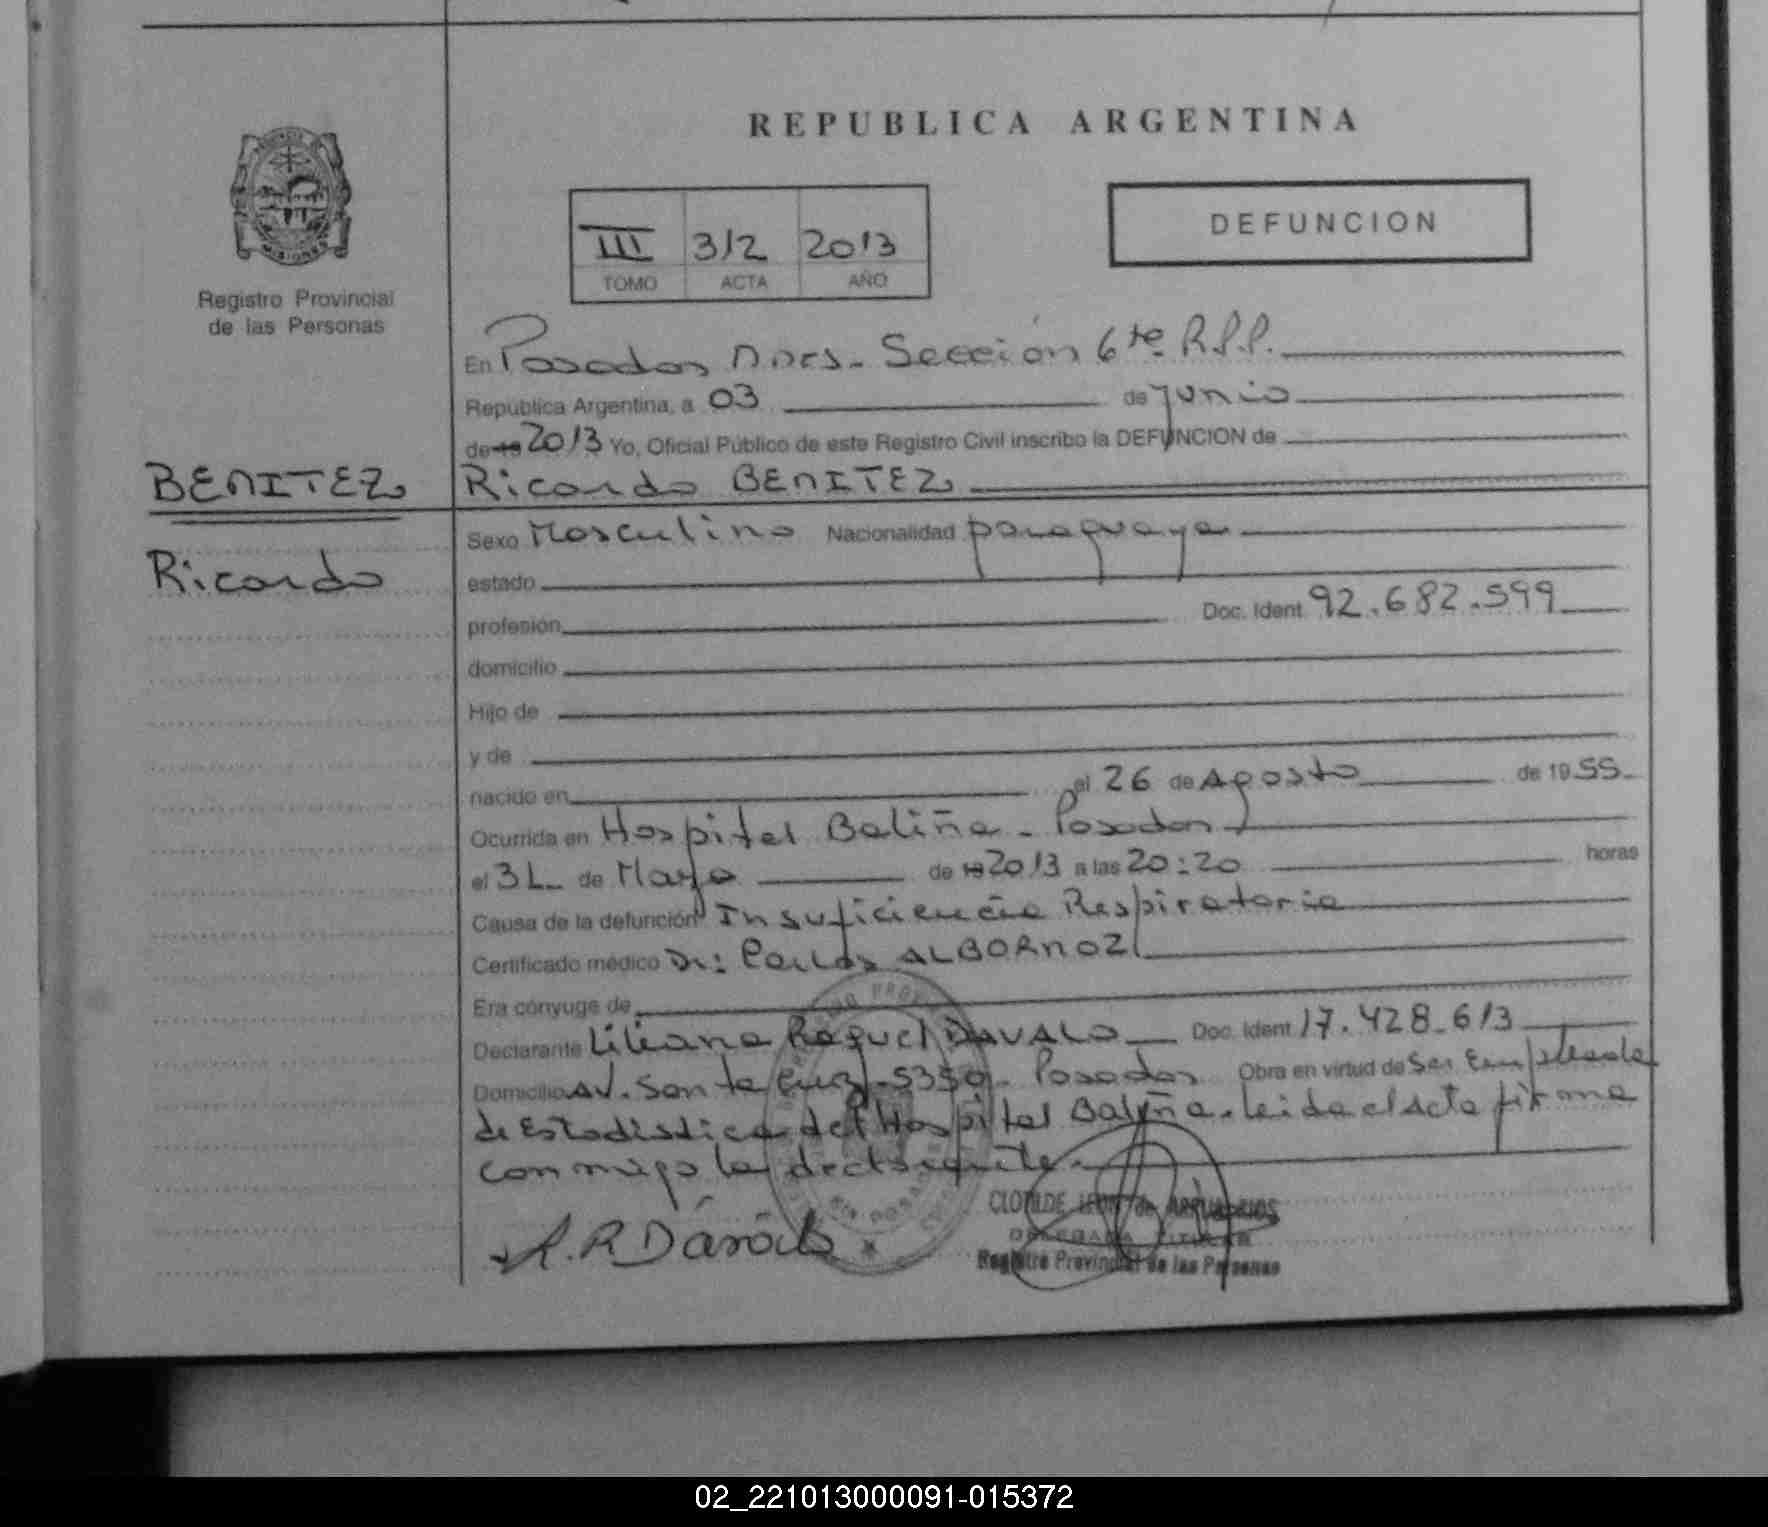 REPUBLICA ARGENTINA
DEFUNCION
III 312 2013
TOMO ACTA AÑO
MISIONES
Registro Provincial
de las Personas
En Posadas Mnes. Sección 6ta R.P.P.
República Argentina, a 03 de junio
de 19 2013 Yo, Oficial Público de este Registro Civil inscribo la DEFUNCION de
BENITEZ
Ricardo BENITEZ
Ricardo
Sexo Masculino Nacionalidad paraguaya
estado
profesión Doc. Ident. 92.682.599
domicilio
Hijo de
y de
nacido en el 26 de Agosto de 19 55
Ocurrida en Hospital Baliña - Posadas
el 31 de Mayo de 19 2013 a las 20:20 horas
Causa de la defunción Insuficiencia Respiratoria
Certificado médico Dr: Carlos ALBORNOZ
Era cónyuge de
Declarante Liliana Raquel DAVALO Doc. Ident 17.428.613
Domicilio Av. Santa Cruz - 5350 - Posadas Obra en virtud de Ser Empleada
de Estadistica del Hospital Baliña. Leida el Acta firma
conmigo la declarante.
CLOTILDE de
DELEGADA TITULAR
Registro Provincial de las Personas
02_221013000091-015372